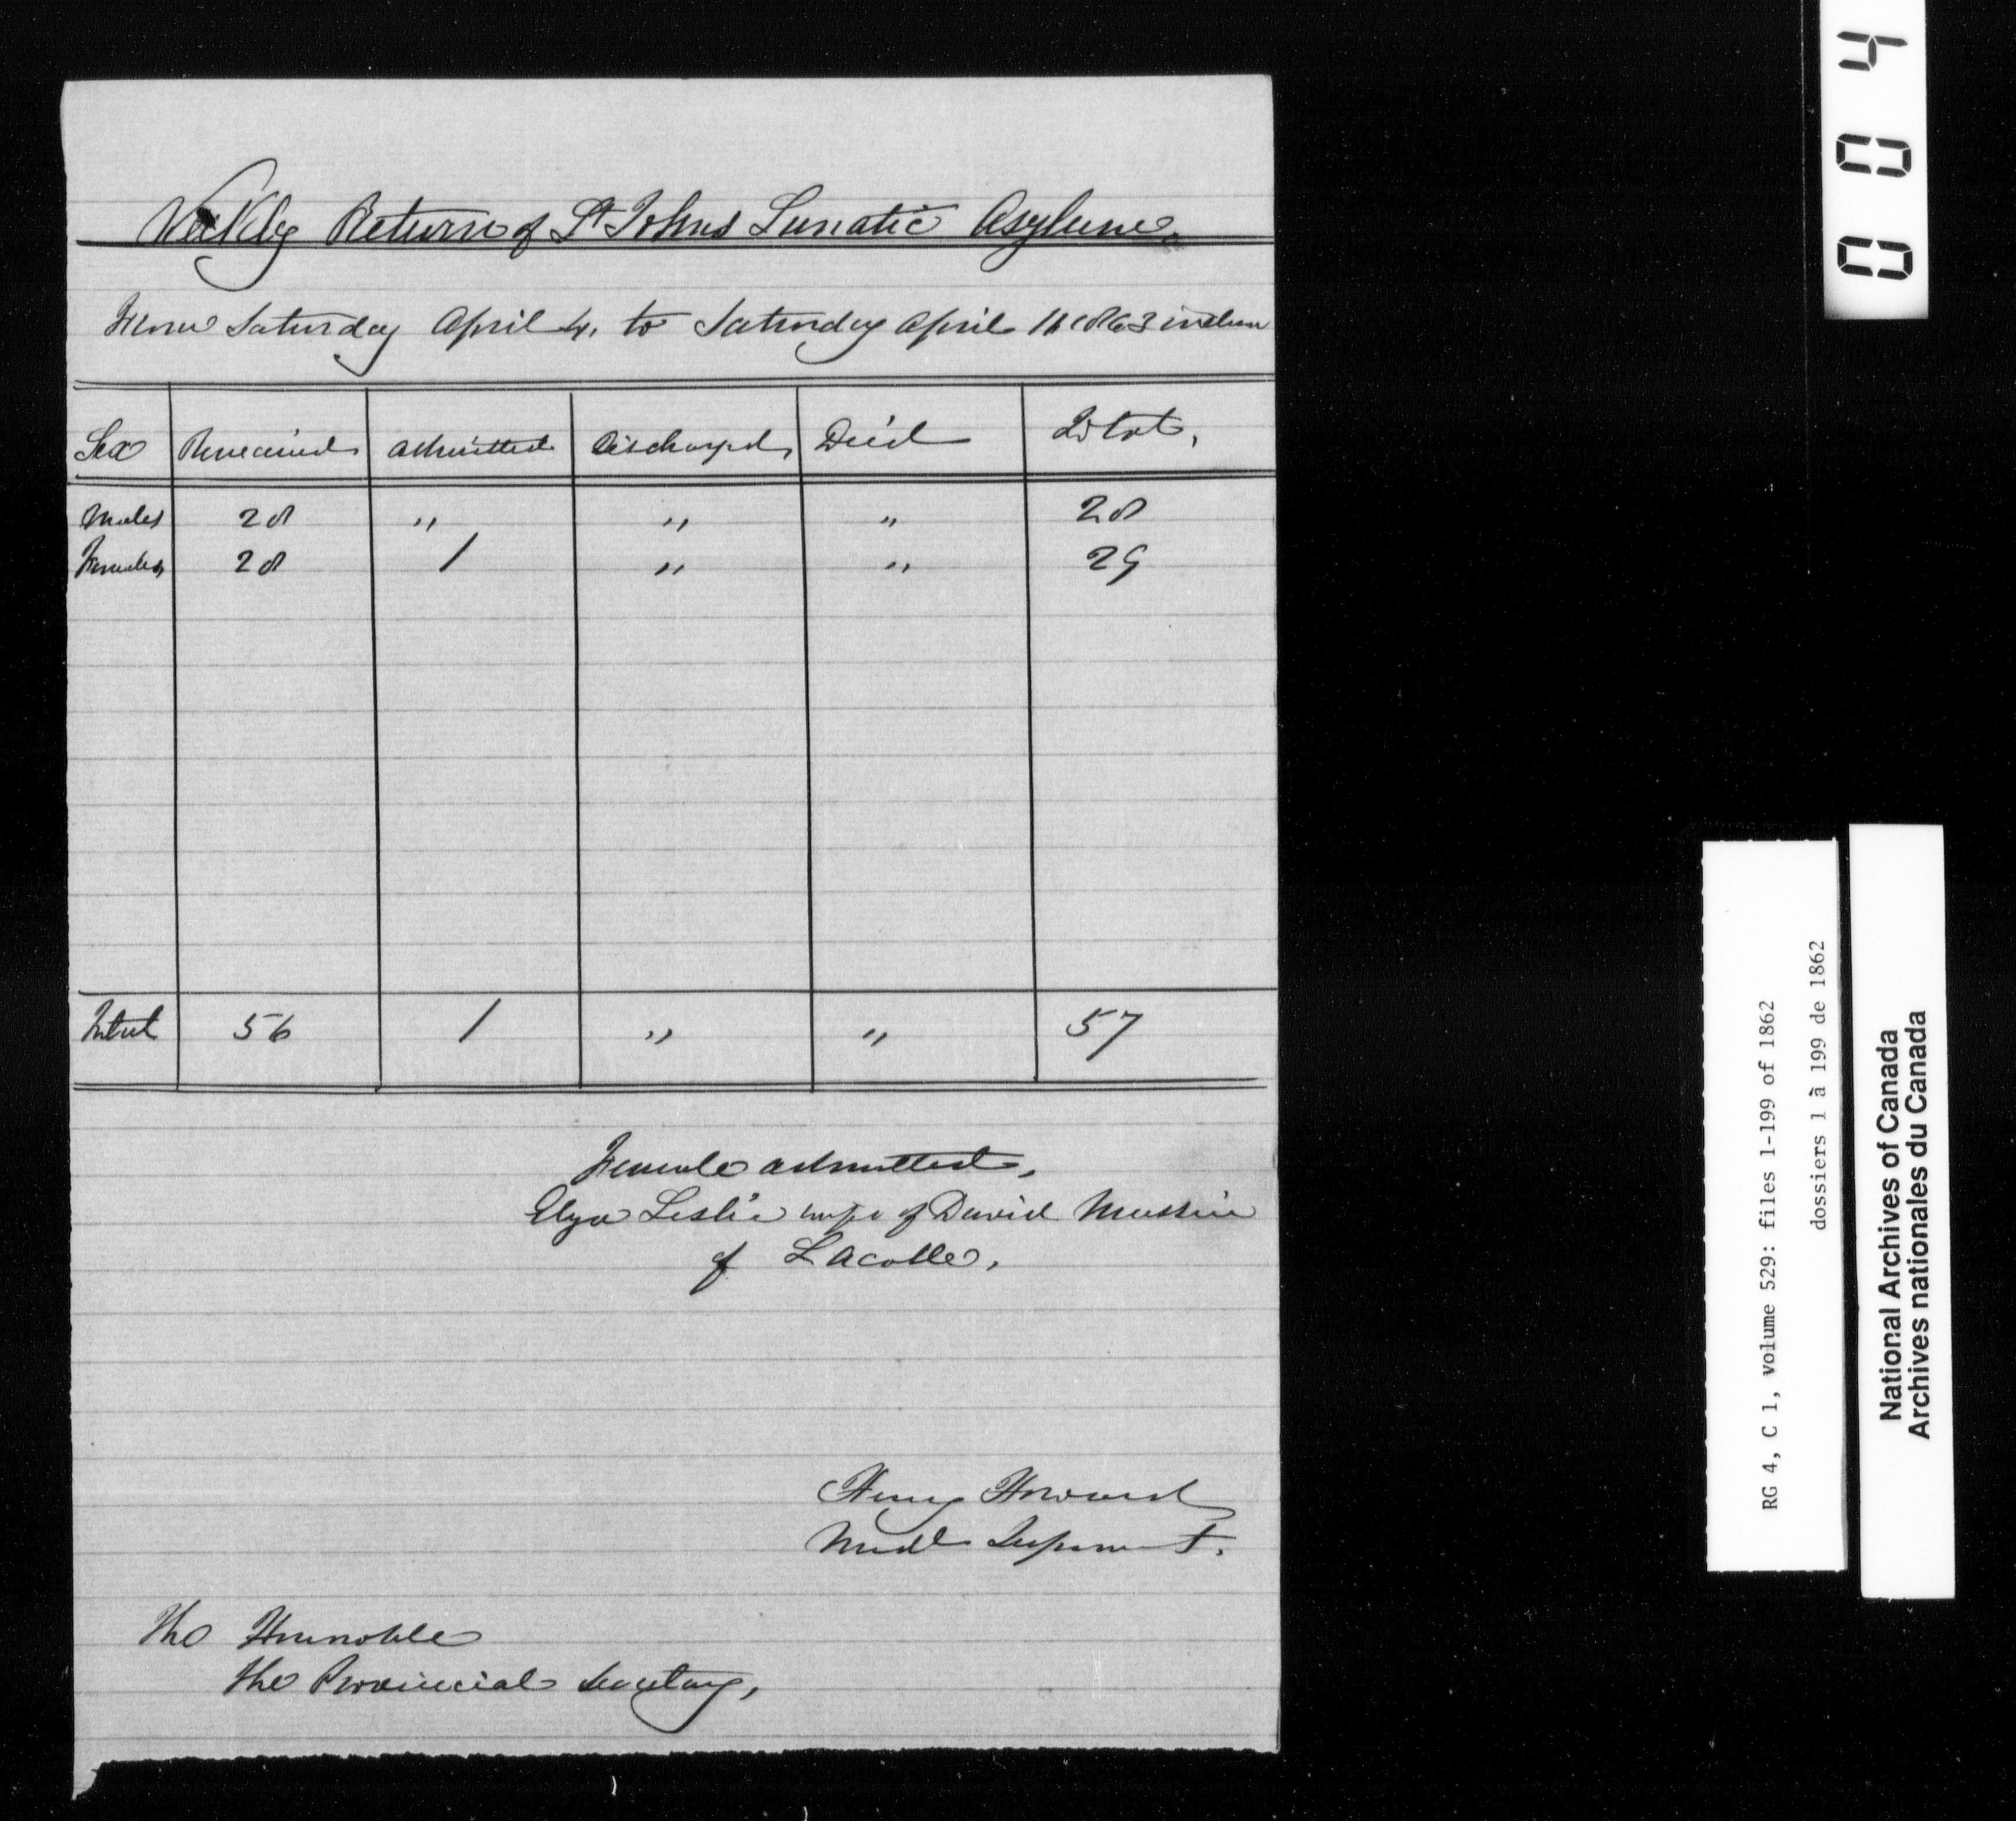 Weekly Return of St Johns Lunatic Asylum.
From Saturday April 4, to Saturday April 11 1863
Sex Remained Admitted Discharged Died Total,
Males 28 " " " 28
Females 28 1 " " 29
Total 56 1 " " 57
Female admitted,
Leslie wife of David
of Lacolle,
Henry Howard
Medl
The Honorable
the Provincial Secretary,
004
RG 4, C 1, volume 529: files 1-199 of 1862
dossiers 1 à 199 de 1862
National Archives of Canada
Archives nationales du Canada